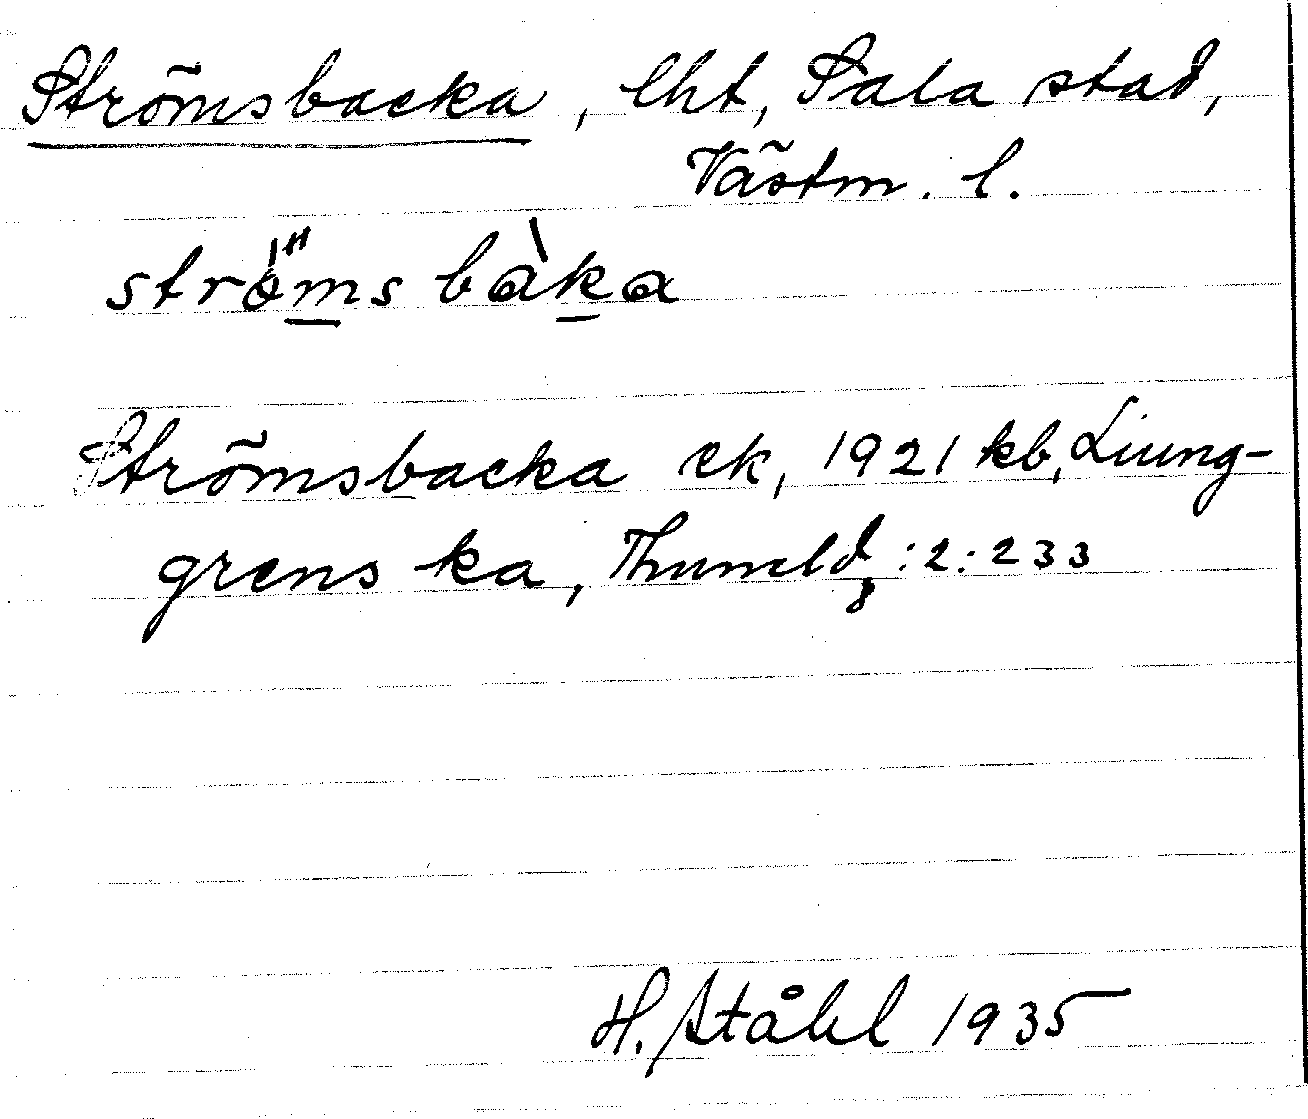 Strömsbacka, lht, Sala stad,
Västm. l.
strö̀msbàka
Strömsbacka ek, 1921 kb, Liung-
grens ka, Thuneld, :2:233
H. Ståhl 1935